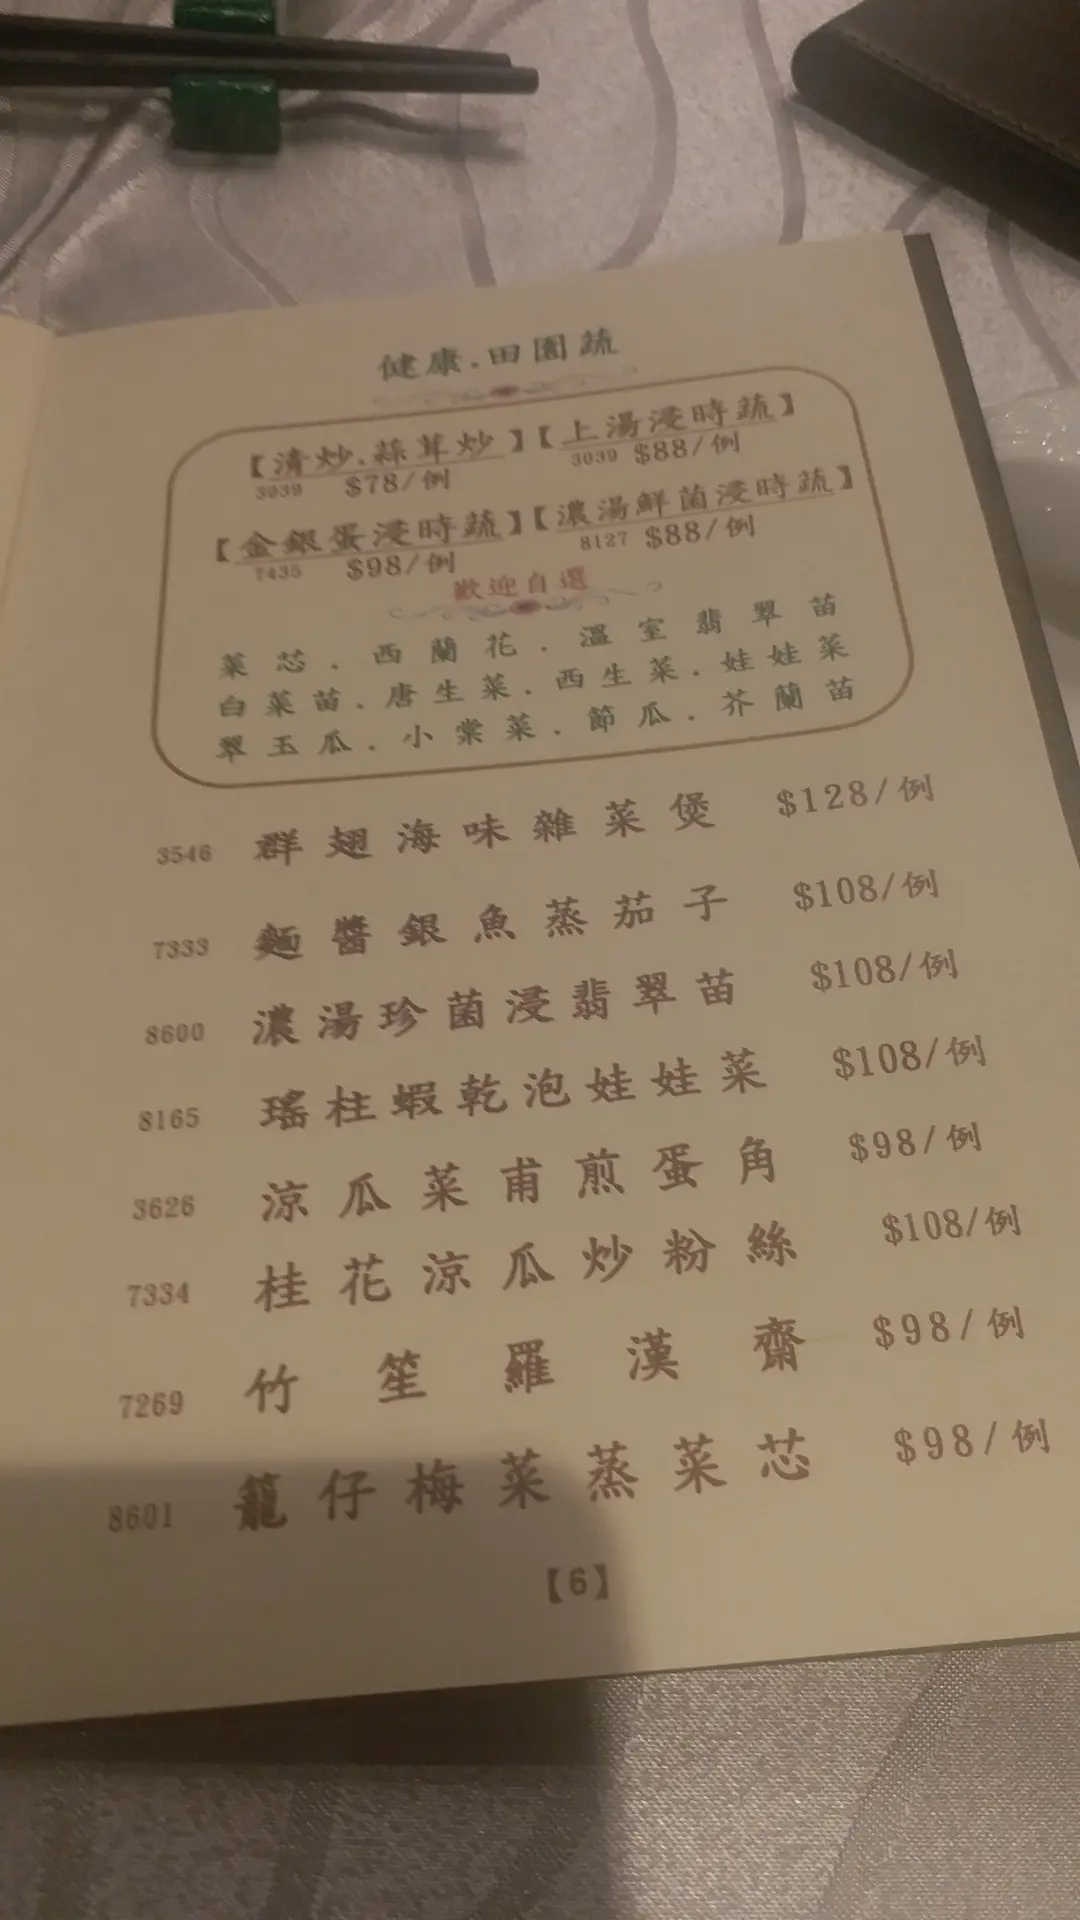 健康.田園蔬
【清炒.蒜茸炒】【上湯浸時蔬】
3039 $78/例 3039 $88/例
【金銀蛋浸時蔬】【濃湯鮮菌浸時蔬】
7435 $98/例 8127 $88/例
歡迎自選
菜芯.西蘭花.溫室翡翠苗
白菜苗.唐生菜.西生菜.娃娃菜
翠玉瓜.小棠菜.節瓜.芥蘭苗
3546 群翅海味雜菜煲 $128/例
7333 麵醬銀魚蒸茄子 $108/例
8600 濃湯珍菌浸翡翠苗 $108/例
8165 瑤柱蝦乾泡娃娃菜 $108/例
3626 涼瓜菜甫煎蛋角 $98/例
7334 桂花涼瓜炒粉絲 $108/例
7269 竹笙羅漢齋 $98/例
8601 籠仔梅菜蒸菜芯 $98/例
【6】